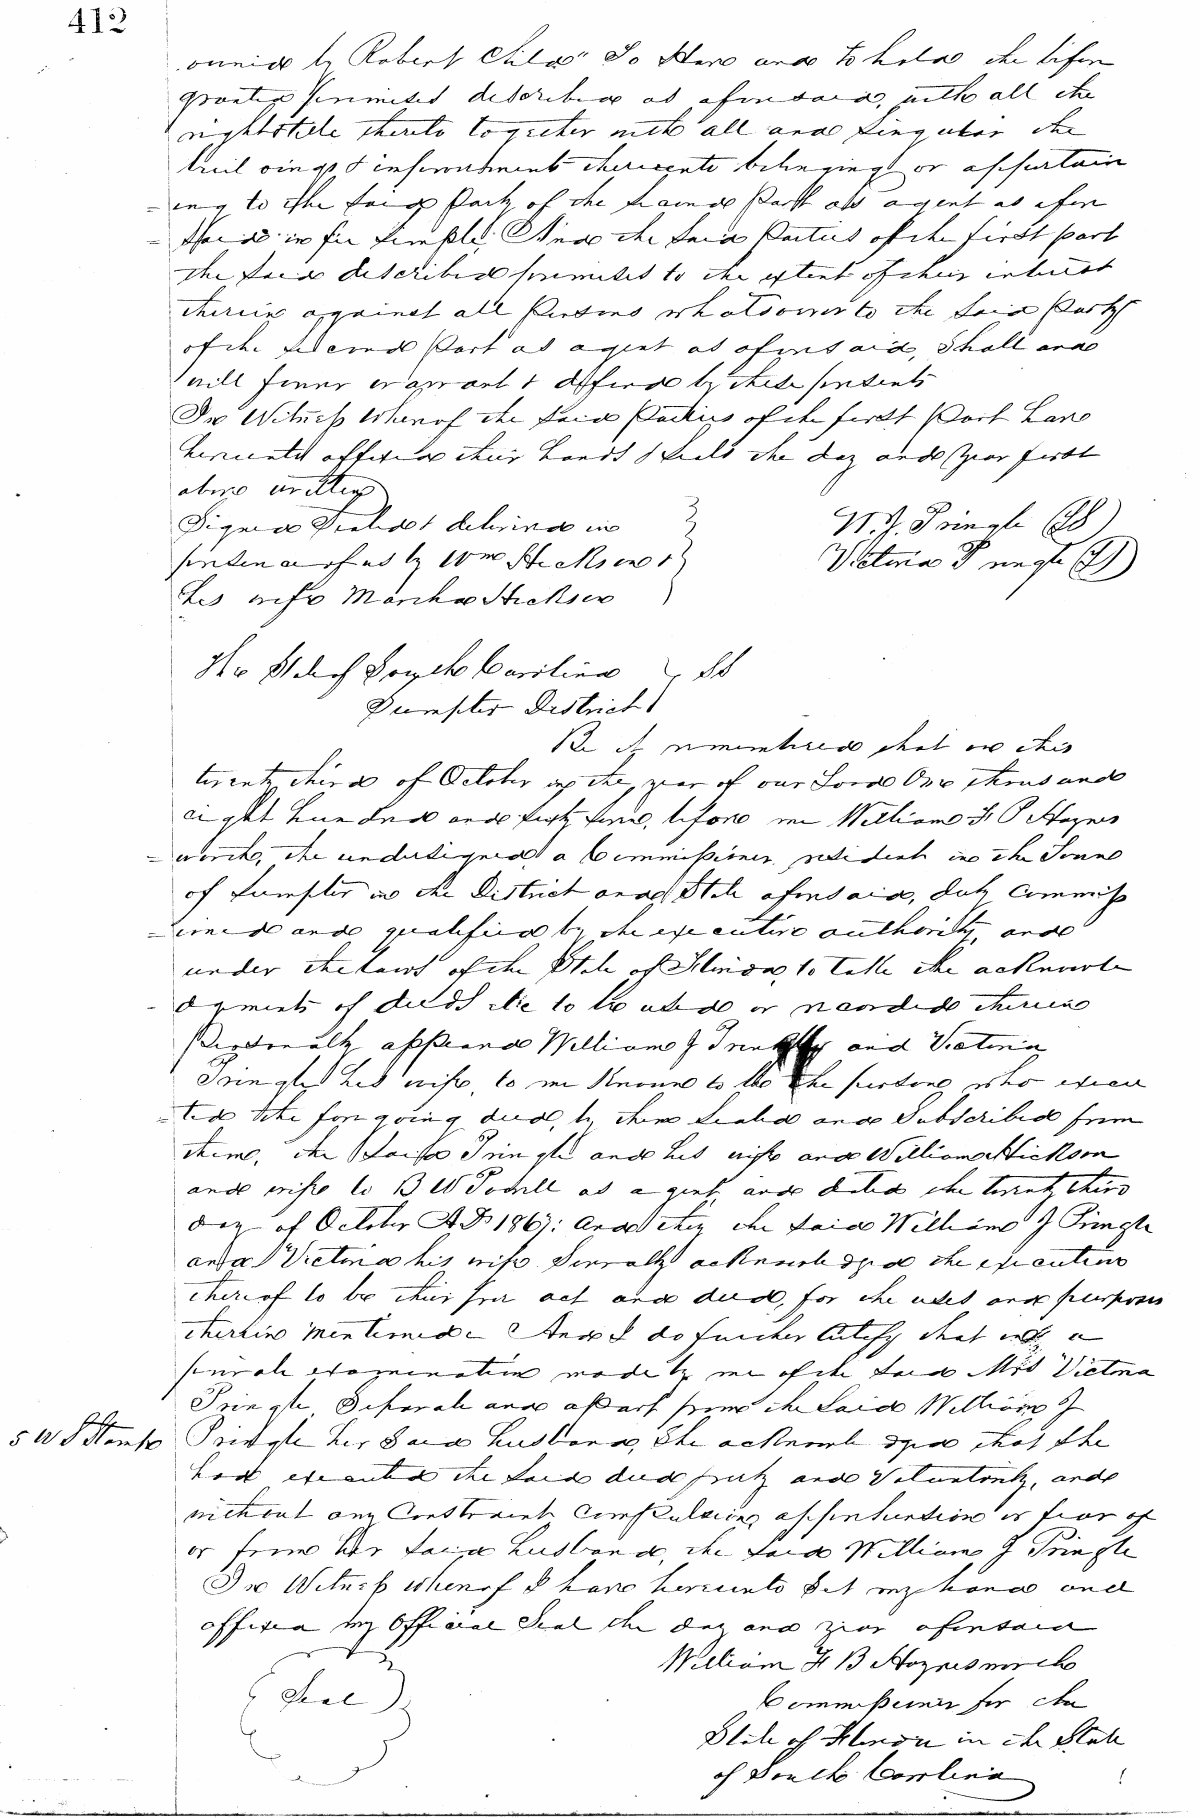 412
owned by Robert Childs" To Have and to hold the before
granted premises described as aforesaid, with all the
right & title thereto together with all and Singular the
buil dings & improvements thereunto belonging or appertain
=ing to the Said Party of the Second Part as agent as afore
=Said in fee Simple. And the Said Parties of the first part
the Said described premises to the extent of their interest
therein against all Persons whatsoever to the Said Party
of the Second Part as agent as aforesaid, Shall and
will forever warrant & defend by these presents
In Witness Whereof the Said Parties of the first Part have
hereunto affixed their hands & Seals the day and Year first
above written
Signed Sealed & delivered in
presence of us by Wm Hickson &
his wife Martha Hickson
W. J. Pringle (LS)
Victoria Pringle (LS)
The State of South Carolina } SS
Sumpter District
Be it remembered that on this
twenty third of October in the year of our Lord One thousand
eight hundred and Sixty Seven, before me William F B Haynes
=worth, the undersigned a Commissioner resident in the Town
of Sumpter in the District and State aforesaid, duly Commiss
=ioned and qualified by the executive authority, and
under the laws of the State of Florida, to take the acknowle
-dgments of deeds etc to be used or recorded therein
Personally appeared William J Pringle and Victoria
Pringle his wife, to me Known to be the persons who execu
=ted the foregoing deed, by them Sealed and Subscribed from
them, the Said Pringle and his wife and William Hickson
and wife to B W Powell as agent, and dated the twenty third
day of October A D 1867: And they the Said William J Pringle
and Victoria his wife Severally acknowledged the execution
thereof to be their free act and deed, for the uses and purposes
therein mentioned - And I do further Certify that on a
private examination made by me of the Said Mrs Victoria
Pringle, Separate and apart from the Said William J
5 US Stamps
Pringle her Said husband, She acknowledged that She
had executed the Said deed freely and Voluntarily, and
without any Constraint, Compulsion, apprehension or fear of
or from her Said husband, the Said William J Pringle
In Witness whereof I have hereunto Set my hand and
affixed my Official Seal the day and year aforesaid
William F B Haynesworth
(Seal)
Commissioner for the
State of Florida in the State
of South Carolina